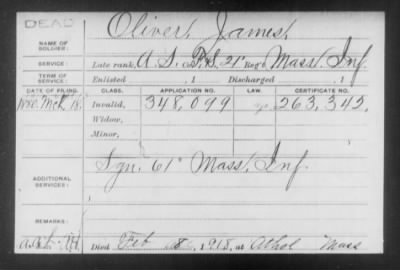 DEAD
NAME OF SOLDIER: Oliver, James.
SERVICE: Late rank, A.S., F.S. 21" Reg't Mass. Inf.
TERM OF SERVICE: Enlisted , 1 Discharged , 1
DATE OF FILING. CLASS. APPLICATION NO. LAW. CERTIFICATE NO.
1880. Mch 18. Invalid, 348,099 263,342.
Widow,
Minor,
ADDITIONAL SERVICES: Sgn. 61" Mass. Inf.
REMARKS:
Died Feb 18, 1918, at Athol Mass